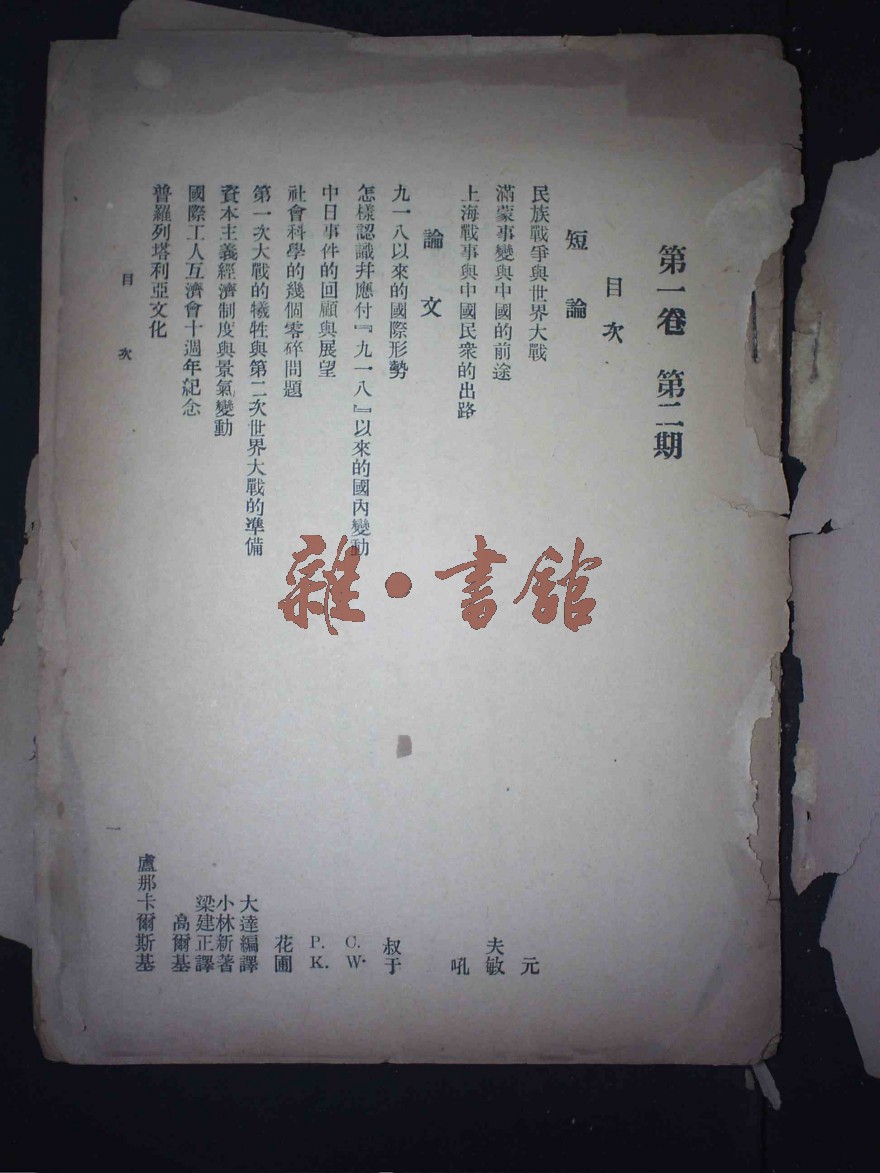 第一卷 第二期
目次
短論
民族戰爭與世界大戰 元
滿蒙事變與中國的前途 夫敏
上海戰事與中國民衆的出路 吼
論文
九一八以來的國際形勢 叔于
怎樣認識幷應付『九一八』以來的國內變動 C. W.
中日事件的回顧與展望 P. K.
社會科學的幾個零碎問題 花圃
第一次大戰的犧牲與第二次世界大戰的準備 大達編譯
資本主義經濟制度與景氣變動 小林新著 梁建正譯
國際工人互濟會十週年紀念 高爾基
普羅列塔利亞文化 盧那卡爾斯基
目次
一
雜·書館